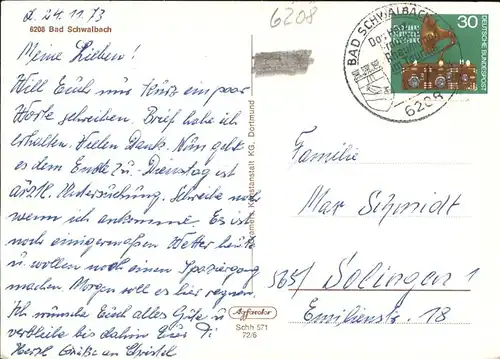 d. 24. 11. 73
6208 Bad Schwalbach
6208
Meine Lieben!
Will Euch nur kurz ein paar
Worte schreiben. Brief habe ich
erhalten. Vielen Dank. Nun geht
es dem Ende zu. Dienstag ist
ärztl. Untersuchung. Schreibe noch
wenn ich ankomme. Es ist
noch einigermaßen Wetter heute
u. wollen noch einen Spaziergang
machen. Morgen soll es hier regnen.
Ich wünsche Euch alles Gute u.
verbleibe bis dahin Eure
Herzl. Grüße an Christel
Kunstanstalt KG, Dortmund
Agfacolor
Schh 571
72/6
BAD SCHWALBACH
6208
30
DEUTSCHE BUNDESPOST
Familie
Max Schmidt
565/ Solingen 1
Emilienstr. 18